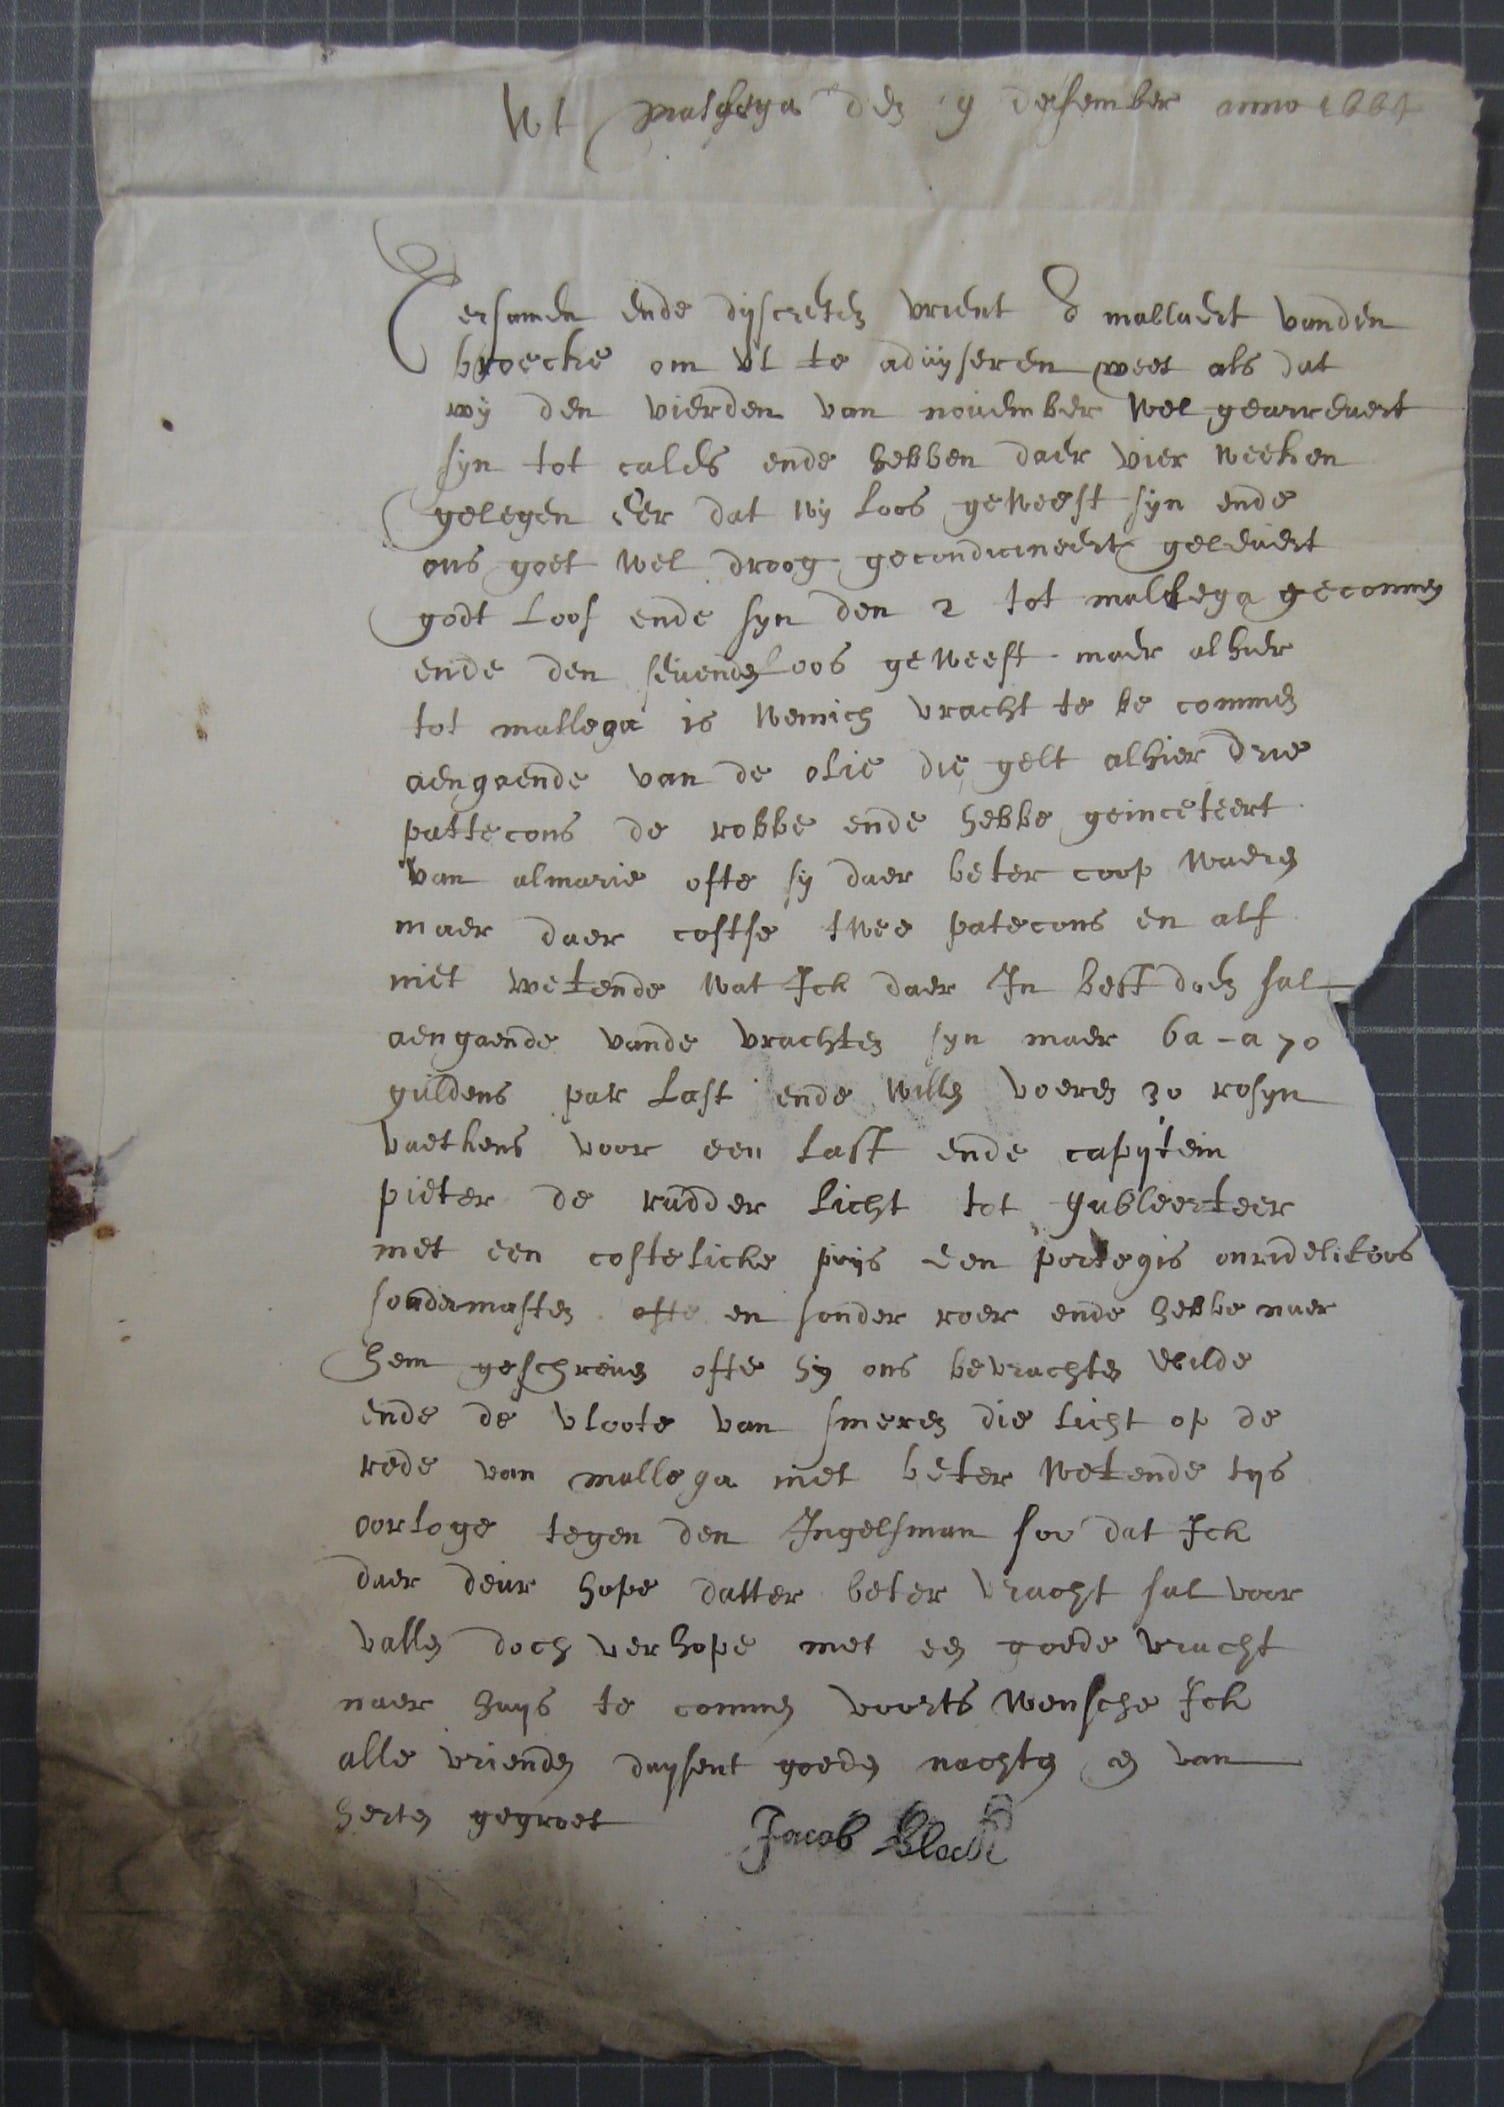 Wt mallega den 9 desember anno 1664
Eersamen ende dyscreten vrient S mallaert vanden
broecke om Ul te aduyseren weet als dat
wy den vierden van nouember wel gearreuert
syn tot calds ende hebben daer vier weeken
gelegen Eer dat wy Loos geweest syn ende
ons goet wel droog gecondicineert geleuert
godt Loof ende syn den 2 tot mallega gecommen
ende den seuenden Loos geweest maer alhier
tot mallega is weinich vracht te be commen
aengaende van de olie die gelt alhier drie
pattecons de robbe ende hebbe geinceteert
van almarie ofte sy daer beter coop waeren
maer daer costse twee patecons en alf
niet wetende wat Ick daer In best doen sal
aengaende vande vrachten syn maer 6a - a 70
guldens par Last ende willen voeren 30 rosyn
vaetkens voor een Last ende capytein
pieter de rudder Licht tot gubleerteer
met een costelicke prijs Een portegis
sondermasten ofte en sonder roer ende hebbe naer
hem geschreuen ofte hy ons bevrachten wilde
ende de vloote van smeren die licht op de
rede van mallega niet beter wetende tys
oorloge tegen den Ingelsman soo dat Ick
daer deur hope datter beter vracht sal voor
vallen doch verhope met een goede vracht
naer huys te commen voorts wensche Ick
alle vrienden duysent goeden nachten en van
herten gegroet Jacob Black